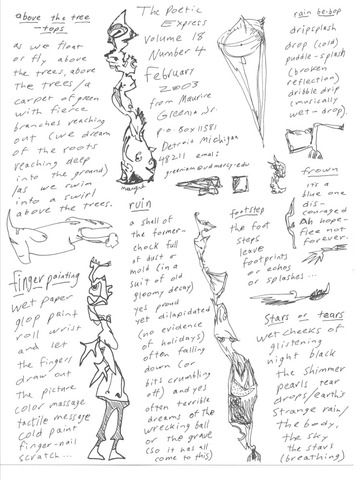 above the tree
-tops
as we float
or fly above
the trees, above
the trees/a
carpet of green
with fierce
branches reaching
out (we dream
of the roots
reaching deep
into the ground)
/as we swim
into a swirl
above the trees.
The Poetic
Express
Volume 18
Number 4
February
2003
from Maurice
Greenia Jr.
P.O. Box 11581
Detroit Michigan
48211 email
rain be-bop
dripsplash
drop (cold)
puddle-splash
(broken
reflection)
dribble drip
(musically
wet-drop).
frown
its a
blue one
dis-
couraged
ah hope-
flee not
forever.
ruin
a shell of
the former-
chock full
of dust &
mold (in a
suit of old
gloomy decay)
yes proud
yet dilapidated
(no evidence
of holidays)
often falling
down (or
bits crumbling
off) and yes
often terrible
dreams of the
wrecking ball
or the grave
(so it has all
come to this)
footstep
the foot
steps
leave
footprints
or echos
or splashes...
finger painting
wet paper
glop paint
roll wrist
and let
the finger/
draw out
the picture
color massage
tactile message
cold paint
finger-nail
scratch...
Stars or tears
wet cheeks of
glistening
night black
the shimmer
pearls tear
drops/earth's
strange rain/
the body,
the sky
the stars
(breathing)